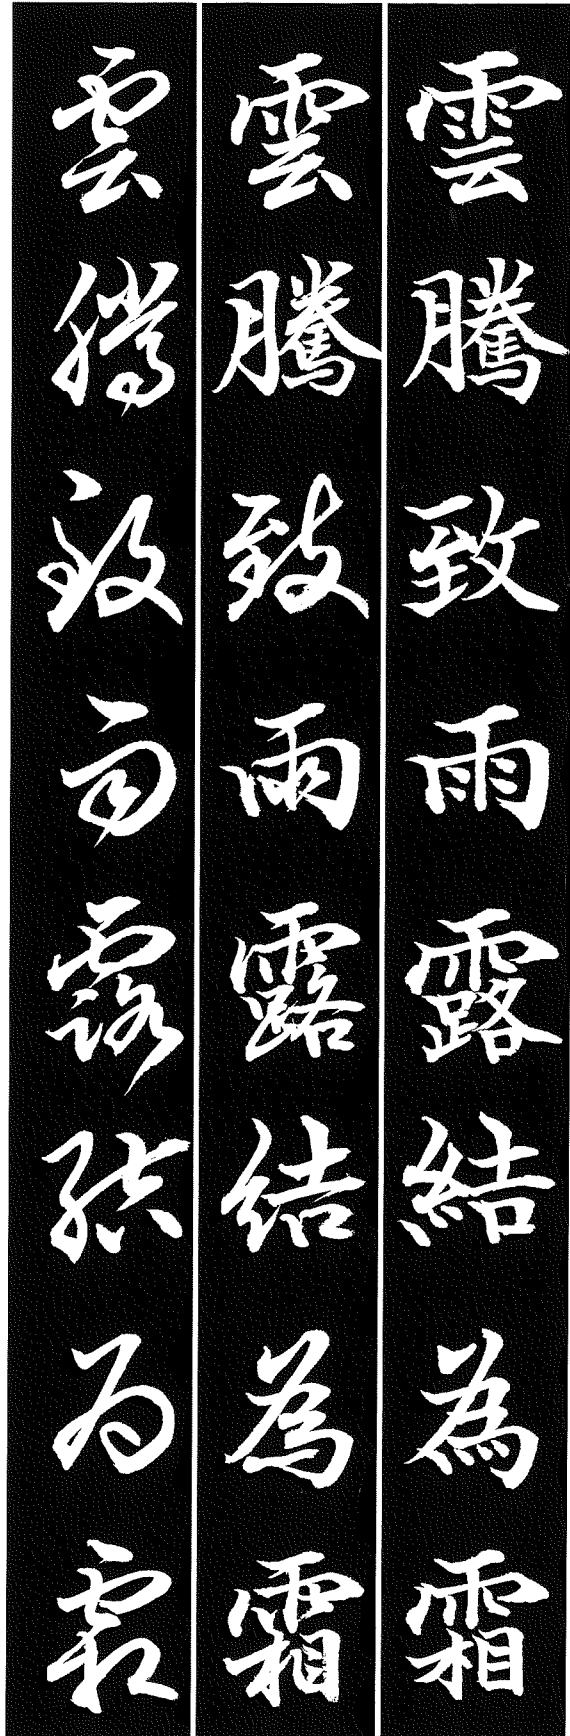 雲騰致雨露結為霜
雲騰致雨露結為霜
雲騰致雨露結為霜